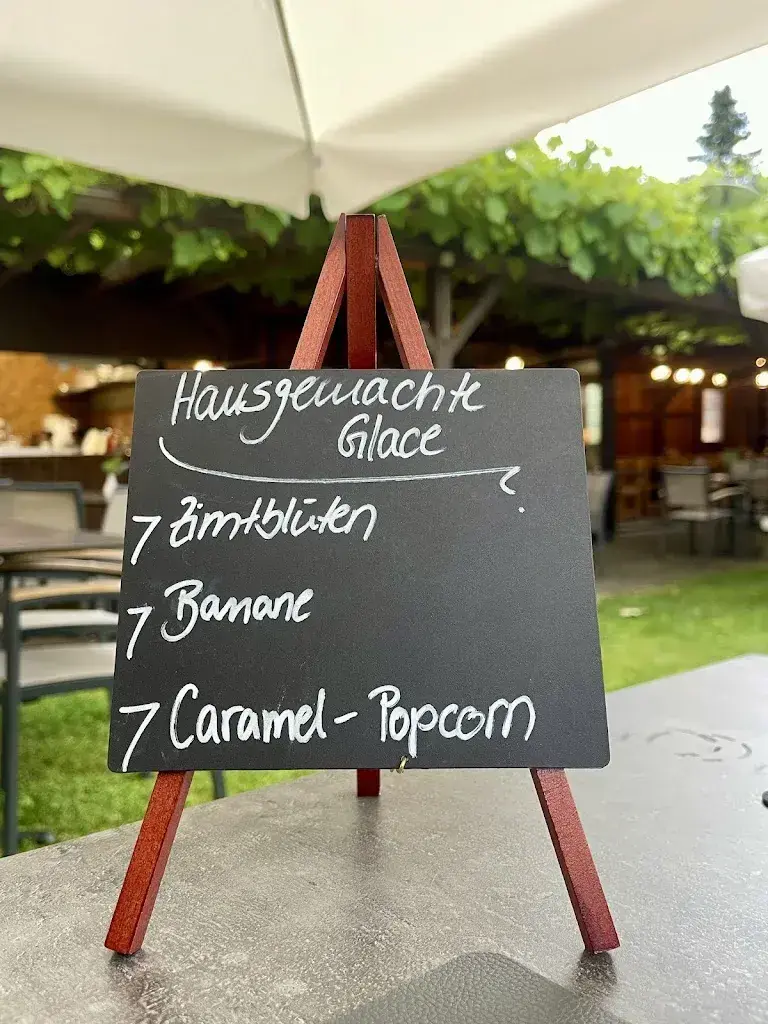 Hausgemachte
Glace
→ Zimtblüten
→ Banane
→ Caramel - Popcorn